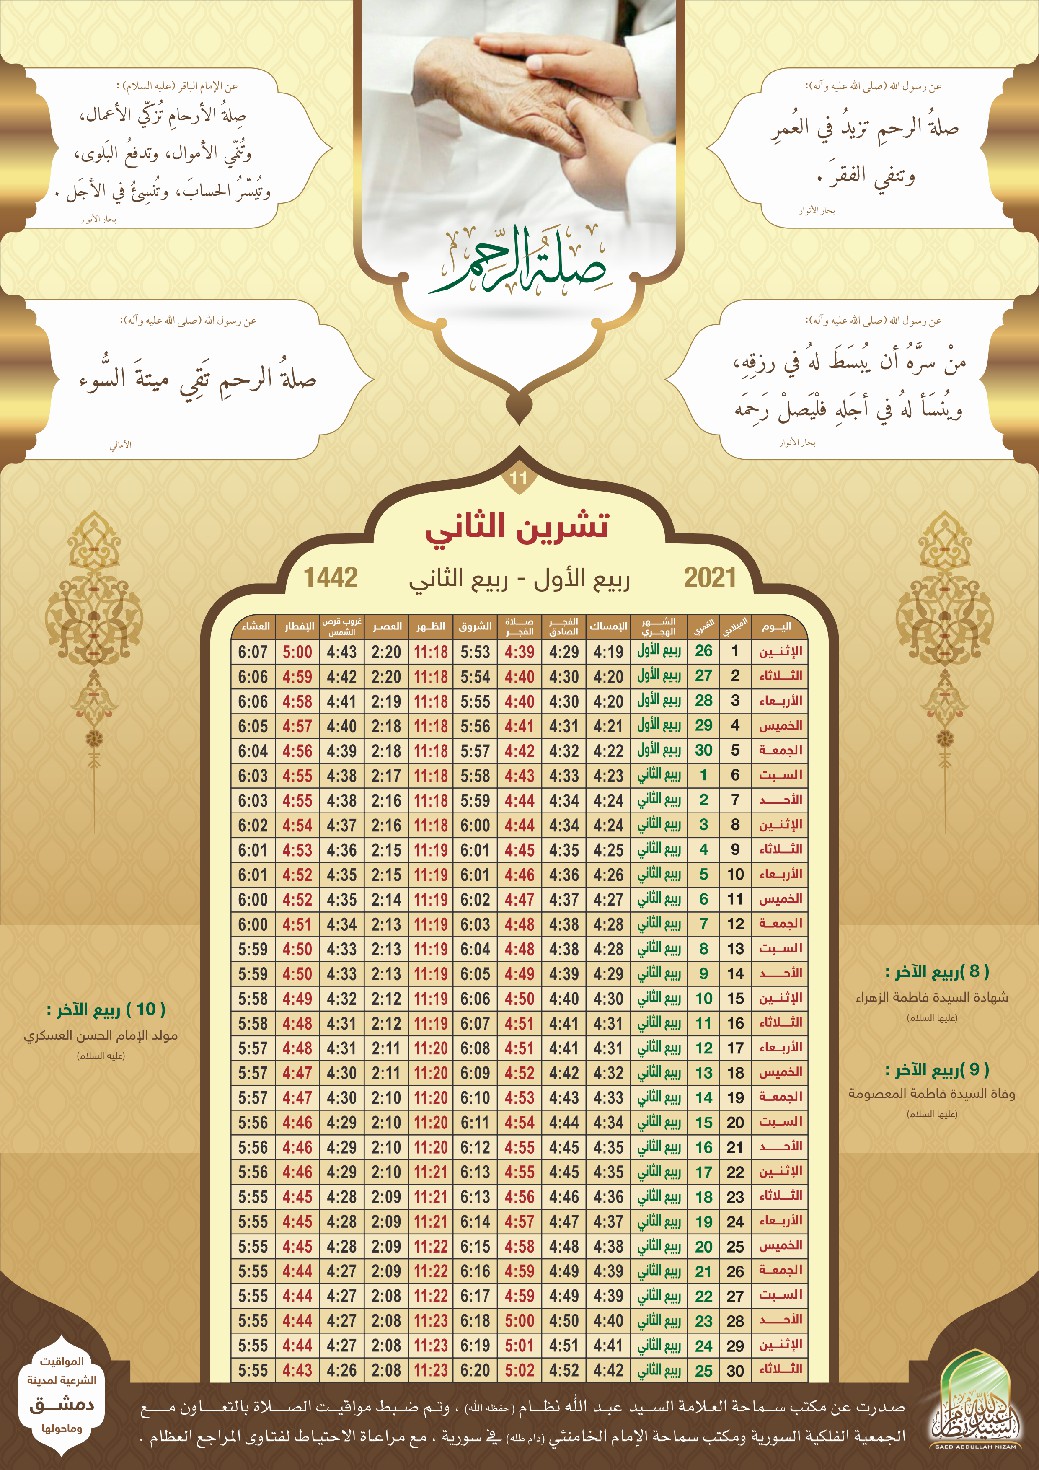 عن رسول الله (صلى الله عليه وآله):
صلةُ الرحمِ تزيدُ في العُمرِ
وتنفي الفقرَ .
بحار الأنوار
عن الإمام الباقر (عليه السلام) :
صِلةُ الأرحامِ تُزكّي الأعمال،
وتُنمّي الأموال، وتدفعُ البَلوى،
وتُيسّرُ الحسابَ، وتُنسِئُ في الأجَل .
بحار الأنوار
صلة الرحم
عن رسول الله (صلى الله عليه وآله):
منْ سرَّهُ أن يُبسَطَ لهُ في رزقِهِ،
ويُنسَأ لهُ في أجَلهِ فلْيَصلْ رَحِمَه
بحار الأنوار
عن رسول الله (صلى الله عليه وآله):
صلةُ الرحمِ تَقِي ميتةَ السُّوء
الأمالي
11
تشرين الثاني
2021 ربيع الأول - ربيع الثاني 1442
اليوم الميلادي القمري الشهر الهجري الإمساك الفجر الصادق صلاة الفجر الشروق الظهر العصر غروب قرص الشمس الإفطار العشاء
الإثنين 1 26 ربيع الأول 4:19 4:29 4:39 5:53 11:18 2:20 4:43 5:00 6:07
الثلاثاء 2 27 ربيع الأول 4:20 4:30 4:40 5:54 11:18 2:20 4:42 4:59 6:06
الأربعاء 3 28 ربيع الأول 4:20 4:30 4:40 5:55 11:18 2:19 4:41 4:58 6:06
الخميس 4 29 ربيع الأول 4:21 4:31 4:41 5:56 11:18 2:18 4:40 4:57 6:05
الجمعة 5 30 ربيع الأول 4:22 4:32 4:42 5:57 11:18 2:18 4:39 4:56 6:04
السبت 6 1 ربيع الثاني 4:23 4:33 4:43 5:58 11:18 2:17 4:38 4:55 6:03
الأحد 7 2 ربيع الثاني 4:24 4:34 4:44 5:59 11:18 2:16 4:38 4:55 6:03
الإثنين 8 3 ربيع الثاني 4:24 4:34 4:44 6:00 11:18 2:16 4:37 4:54 6:02
الثلاثاء 9 4 ربيع الثاني 4:25 4:35 4:45 6:01 11:19 2:15 4:36 4:53 6:01
الأربعاء 10 5 ربيع الثاني 4:26 4:36 4:46 6:01 11:19 2:15 4:35 4:52 6:01
الخميس 11 6 ربيع الثاني 4:27 4:37 4:47 6:02 11:19 2:14 4:35 4:52 6:00
الجمعة 12 7 ربيع الثاني 4:28 4:38 4:48 6:03 11:19 2:13 4:34 4:51 6:00
السبت 13 8 ربيع الثاني 4:28 4:38 4:48 6:04 11:19 2:13 4:33 4:50 5:59
الأحد 14 9 ربيع الثاني 4:29 4:39 4:49 6:05 11:19 2:13 4:33 4:50 5:59
الإثنين 15 10 ربيع الثاني 4:30 4:40 4:50 6:06 11:19 2:12 4:32 4:49 5:58
الثلاثاء 16 11 ربيع الثاني 4:31 4:41 4:51 6:07 11:19 2:12 4:31 4:48 5:58
الأربعاء 17 12 ربيع الثاني 4:31 4:41 4:51 6:08 11:20 2:11 4:31 4:48 5:57
الخميس 18 13 ربيع الثاني 4:32 4:42 4:52 6:09 11:20 2:11 4:30 4:47 5:57
الجمعة 19 14 ربيع الثاني 4:33 4:43 4:53 6:10 11:20 2:10 4:30 4:47 5:57
السبت 20 15 ربيع الثاني 4:34 4:44 4:54 6:11 11:20 2:10 4:29 4:46 5:56
الأحد 21 16 ربيع الثاني 4:35 4:45 4:55 6:12 11:20 2:10 4:29 4:46 5:56
الإثنين 22 17 ربيع الثاني 4:35 4:45 4:55 6:13 11:21 2:10 4:29 4:46 5:56
الثلاثاء 23 18 ربيع الثاني 4:36 4:46 4:56 6:13 11:21 2:09 4:28 4:45 5:55
الأربعاء 24 19 ربيع الثاني 4:37 4:47 4:57 6:14 11:21 2:09 4:28 4:45 5:55
الخميس 25 20 ربيع الثاني 4:38 4:48 4:58 6:15 11:22 2:09 4:28 4:45 5:55
الجمعة 26 21 ربيع الثاني 4:39 4:49 4:59 6:16 11:22 2:09 4:27 4:44 5:55
السبت 27 22 ربيع الثاني 4:39 4:49 4:59 6:17 11:22 2:08 4:27 4:44 5:55
الأحد 28 23 ربيع الثاني 4:40 4:50 5:00 6:18 11:23 2:08 4:27 4:44 5:55
الإثنين 29 24 ربيع الثاني 4:41 4:51 5:01 6:19 11:23 2:08 4:27 4:44 5:55
الثلاثاء 30 25 ربيع الثاني 4:42 4:52 5:02 6:20 11:23 2:08 4:26 4:43 5:55
( 8 )ربيع الآخر :
شهادة السيدة فاطمة الزهراء
(عليها السلام)
( 9 )ربيع الآخر :
وفاة السيدة فاطمة المعصومة
(عليها السلام)
( 10 ) ربيع الآخر :
مولد الإمام الحسن العسكري
(عليه السلام)
المواقيت
الشرعية لمدينة
دمشق
وماحولها
صدرت عن مكتب سماحة العلامة السيد عبد الله نظام (حفظه الله) ، وتم ضبط مواقيت الصلاة بالتعاون مع
الجمعية الفلكية السورية ومكتب سماحة الإمام الخامنئي (دام ظله) في سورية ، مع مراعاة الاحتياط لفتاوى المراجع العظام .
SAED ABDULLAH NIZAM